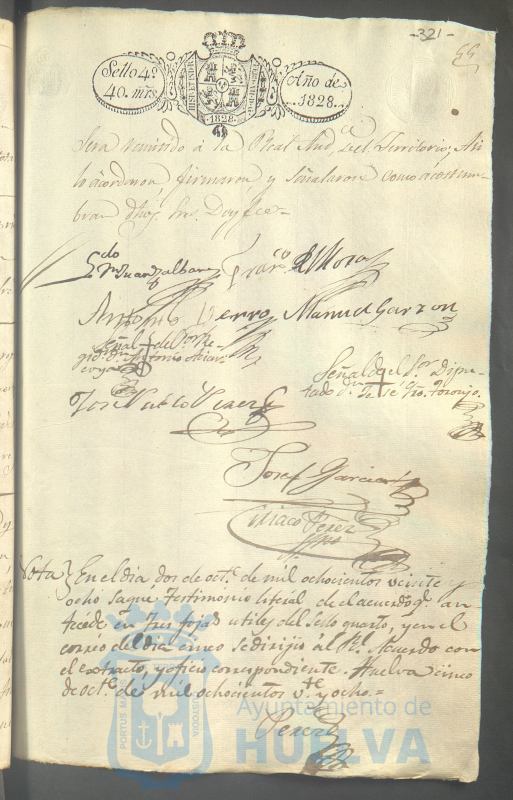 -321-
55
Sello 4º
40. mrs
HISP. ET IND. R.
1828.
Año de
1828.
Sera remitido á la Real Aud.ª del Territorio; Asi
lo acordaron, firmaron y señalaron como acostum-
bran dhos Sres. Doy fee=
Ldo
Juan Fran.co de Mora
Antonio Hierro Manuel Garzon
Señal + del Sr. Re-
gidor Dn. Antonio
Señal del Sr. Dipu-
tado Dn. + José
Jose
Josef Garcia
Ciriaco Perez
Nota} En el dia dos de oct.e de mil ochocientos veinte y
ocho saque testimonio literal de el acuerdo q.e an-
tecede en tres fojas utiles del Sello quarto, y en el
correo del dia cinco se dirijio al Rl. Acuerdo con
el extracto, y oficio correspondiente. Huelva cinco
de oct.e de mil ochocientos v.te y ocho.=
Perez
PORTUS MARIS CUSTODIA
Ayuntamiento de
HUELVA